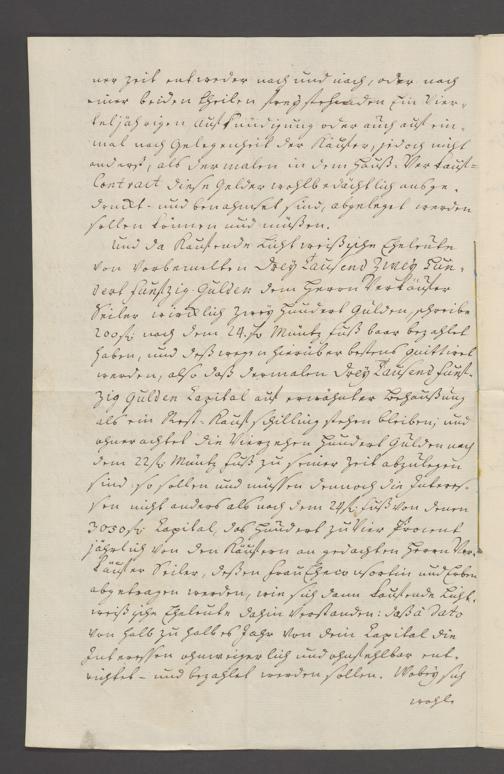 ner Zeit entweder nach und nach, oder nach
einer beiden Theilen freystehenden Ein Vier-
teljährigen Aufkündigung oder auch auf ein-
mal nach Gelegenheit der Käufer, jedoch nicht
anderst, als dermalen in dem Hauß-Verkauf-
Contract diese Gelder wohlbedächtlich ausge-
druckt- und benahmset sind, abgeleget werden
sollen können und müßen.
Und da Kaufende Lichtweißische Eheleute
von vorbemelten Drey Tausend Zwey Hun-
dert Funfzig Gulden dem Herrn Verkäufer
Seiler würklich Zwey Hundert Gulden, schreibe
200 f. nach dem 24. f. Müntz Fuß baar bezahlet
haben, und deßwegen hierüber bestens quittiret
werden, also daß dermalen Drey Tausend Funf-
zig Gulden Capital auf erwähnter Behaußung
als ein Rest-Kaufschilling stehen bleiben; und
ohnerachtet die Vierzehen Hundert Gulden nach
dem 22 f. Müntz Fuß zu seiner Zeit abzulegen
sind, so sollen und müssen dennoch die Interes-
sen nicht anders als nach dem 24 f. Fuß von denen
3050 f. Capital, das Hundert zu Vier Procent
jährlich von den Käufern an gedachten Herrn Ver-
käufer Seiler, deßen Frau Eheconsortin und Erben
abgetragen werden, wie sich dann Kaufende Licht-
weißische Eheleute dahin verstanden: daß a Dato
von halb zu halbes Jahr von dem Capital die
Interessen ohnweigerlich und ohnfehlbar ent-
richtet- und bezahlet werden sollen. Wobey sich
wohl-